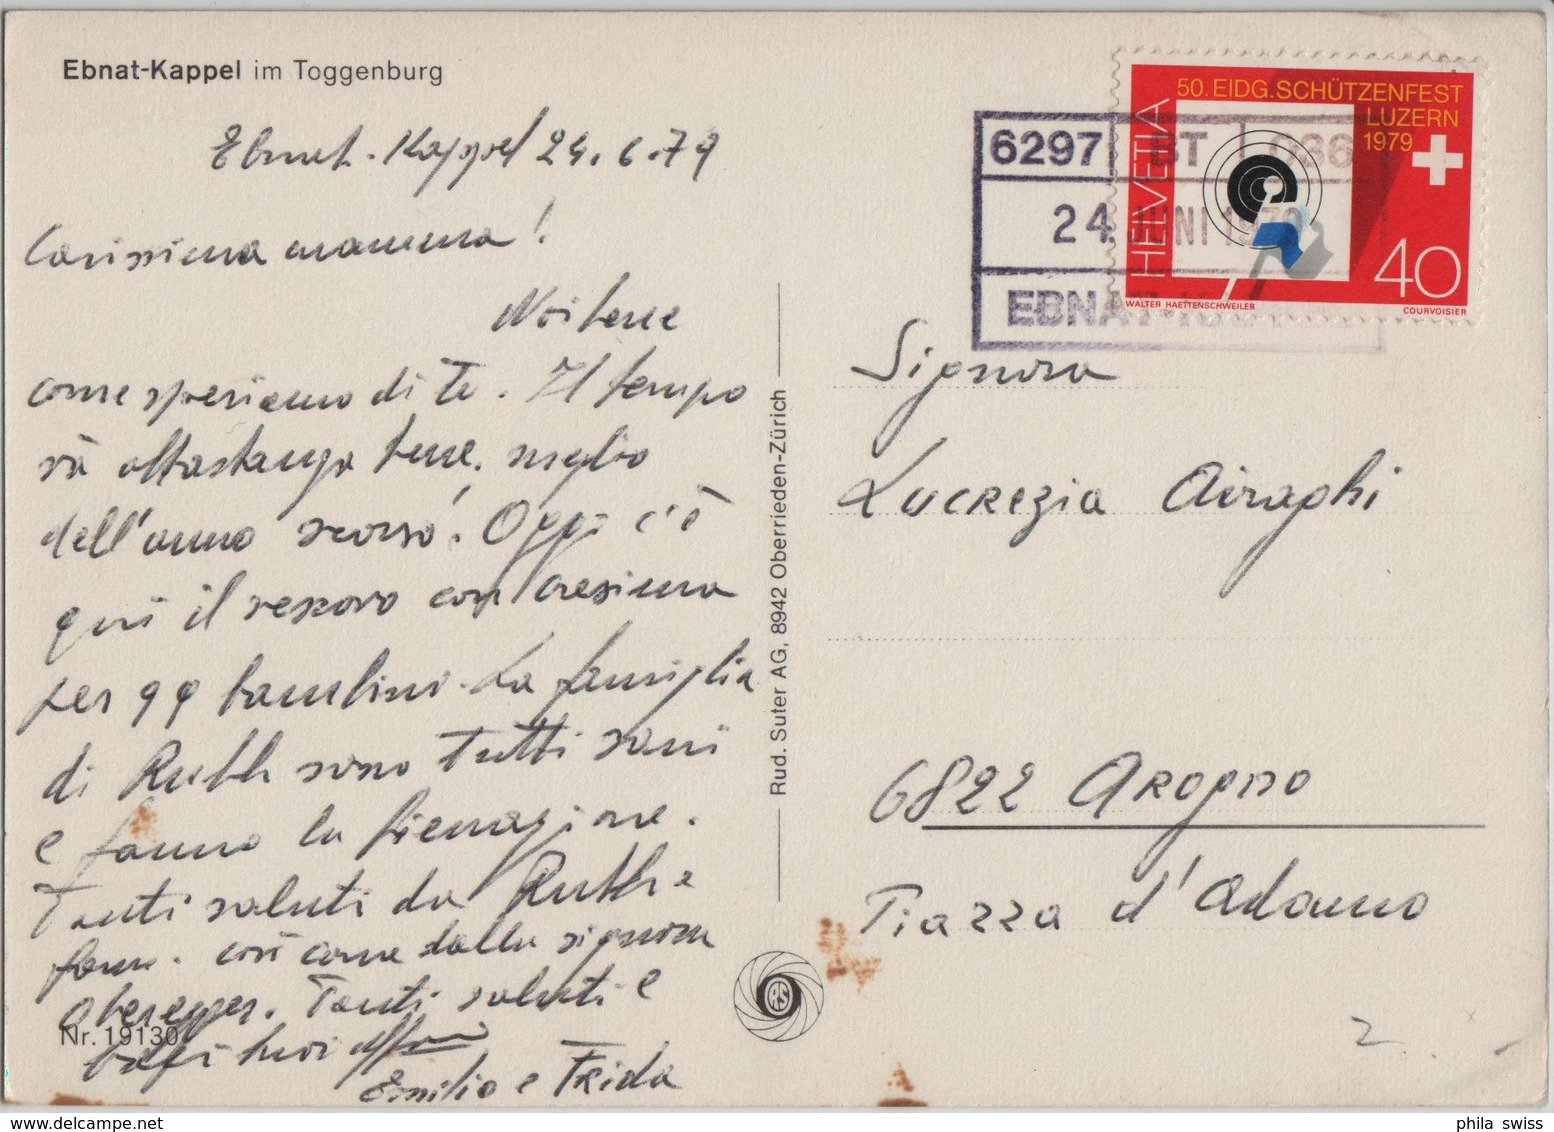 Ebnat-Kappel im Toggenburg
Ebnat-Kappel 24.6.79
Carissima mamma!
Noi bene
come speriamo di te. Il tempo
va abbastanza bene, meglio
dell'anno scorso! Oggi c'è
qui il vescovo con cresima
per 99 bambini. La famiglia
di Ruth sono tutti sani
e fanno la fienagione.
Tanti saluti da Ruth e
fam. così come dalla signora
Tanti saluti e
baci tuoi
Emilio e Frida
Nr. 19130
Rud. Suter AG, 8942 Oberrieden-Zürich
RS
6297 BT 036
24. JUNI 1979
EBNAT-KAPPEL
50. EIDG. SCHÜTZENFEST
LUZERN
1979
HELVETIA
40
WALTER HAETTENSCHWEILER
COURVOISIER
Signora
Lucrezia Airaghi
6822 Arogno
Piazza d'Adamo
2
phila swiss